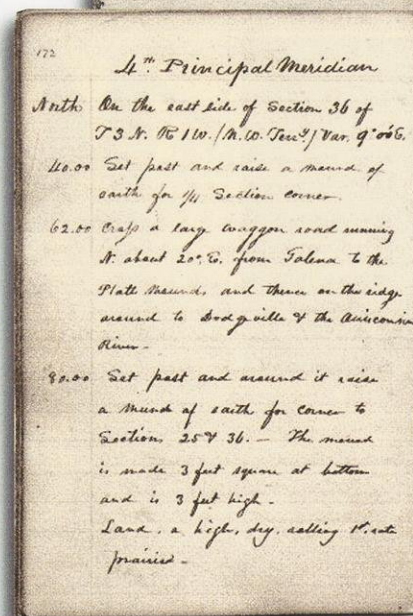 172
4.th Principal Meridian
North On the east side of Section 36 of
T 3 N. R 1 W. (N. W. Terry) Var. 9° 00' E.
40.00 Set post and raise a mound of
earth for 1/4 Section corner.
62.00 Cross a large waggon road running
N. about 20° E. from Galena to the
Platt Mounds, and thence on the ridge
around to Dodgeville & the Ouisconsin
River -
80.00 Set post and around it raise
a mund of earth for corner to
Sections 25 & 36. - The mound
is made 3 feet square at bottom
and is 3 feet high -
Land, a high, dry, rolling 1st rate
prairie -